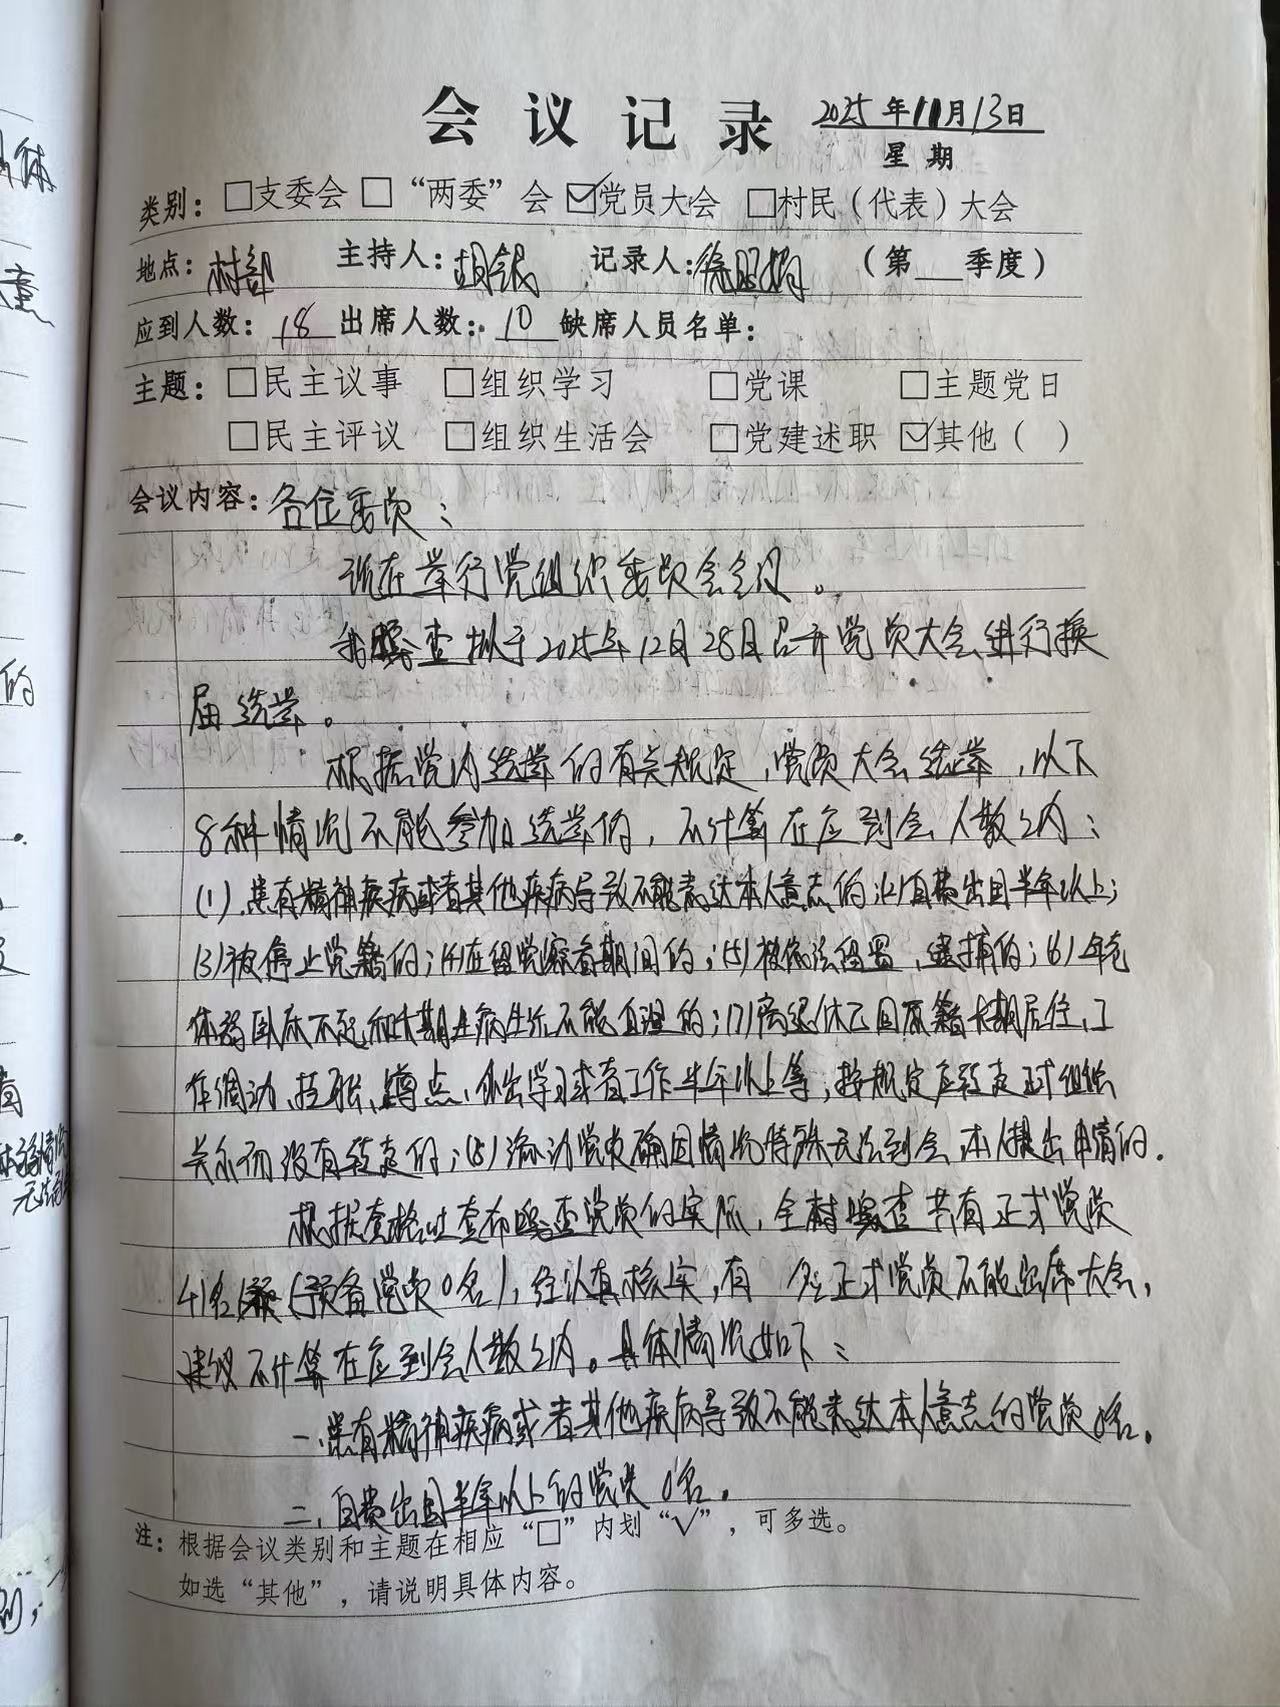 会议记录 2025年11月13日
星期
类别：□支委会 □“两委”会 ☑党员大会 □村民（代表）大会
地点：村部 主持人：胡银 记录人：徐昭娟 （第 季度）
应到人数：18 出席人数：10 缺席人员名单：
主题：□民主议事 □组织学习 □党课 □主题党日
□民主评议 □组织生活会 □党建述职 ☑其他（ ）
会议内容：各位委员：
现在举行党组织委员会会议。
拟于2025年12月28日召开党员大会进行换
届选举。
根据党内选举的有关规定，党员大会选举，以下
8种情况不能参加选举的，不计算在应到会人数之内：
(1)、患有精神疾病或者其他疾病导致不能表达本人意志的；(2)自费出国半年以上；
(3)被停止党籍的；(4)在留党察看期间的；(5)被依法留置、逮捕的；(6)年老
体弱卧床不起和长期生病生活不能自理的；(7)离退休已回原籍长期居住，工
作调动、挂职、蹲点、外出学习或者工作半年以上等，按规定应转走正式组织
关系而没有转走的；(8)流动党员确因情况特殊无法到会，本人提出申请的。
根据 党员的实际，全村 共有正式党员
41名 (预备党员0名)，经认真核实，有 名正式党员不能出席大会，
建议不计算在应到会人数之内。具体情况如下：
一、患有精神疾病或者其他疾病导致不能表达本人意志的党员0名。
二、自费出国半年以上的党员0名。
注：根据会议类别和主题在相应“□”内划“√”，可多选。
如选“其他”，请说明具体内容。
体
童
的